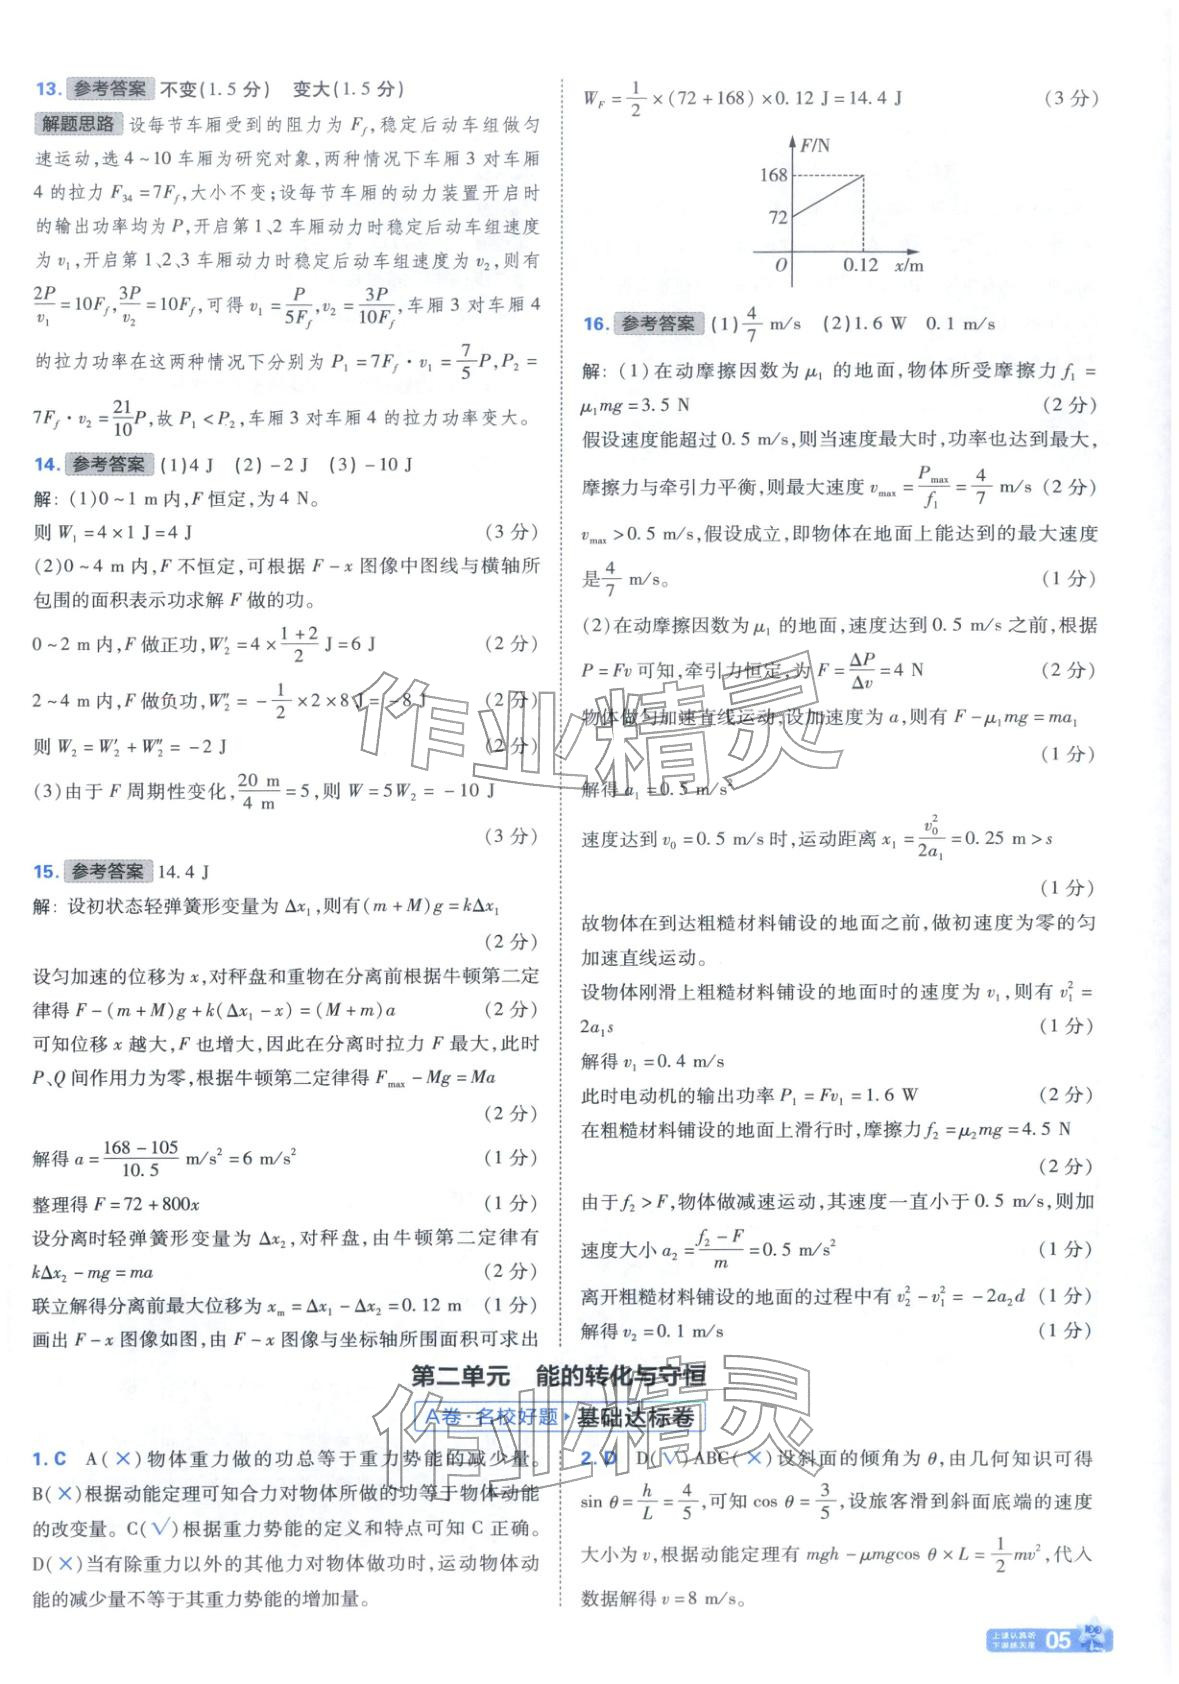 13. 参考答案 不变(1.5 分) 变大(1.5 分)
解题思路 设每节车厢受到的阻力为 F_f,稳定后动车组做匀
速运动,选 4~10 车厢为研究对象,两种情况下车厢 3 对车厢
4 的拉力 F_34 = 7F_f,大小不变;设每节车厢的动力装置开启时
的输出功率均为 P,开启第 1、2 车厢动力时稳定后动车组速度
为 v_1,开启第 1、2、3 车厢动力时稳定后动车组速度为 v_2,则有
2P/v_1 = 10F_f, 3P/v_2 = 10F_f,可得 v_1 = P/5F_f, v_2 = 3P/10F_f,车厢 3 对车厢 4
的拉力功率在这两种情况下分别为 P_1 = 7F_f · v_1 = 7/5 P, P_2 =
7F_f · v_2 = 21/10 P,故 P_1 < P_2,车厢 3 对车厢 4 的拉力功率变大。
14. 参考答案 (1)4 J (2)-2 J (3)-10 J
解: (1)0~1 m 内,F 恒定,为 4 N。
则 W_1 = 4×1 J = 4 J (3 分)
(2)0~4 m 内,F 不恒定,可根据 F-x 图像中图线与横轴所
包围的面积表示功求解 F 做的功。
0~2 m 内,F 做正功,W′_2 = 4×(1+2)/2 J = 6 J (2 分)
2~4 m 内,F 做负功,W″_2 = -1/2×2×8 J = -8 J (2 分)
则 W_2 = W′_2 + W″_2 = -2 J (2 分)
(3)由于 F 周期性变化,20 m/4 m = 5,则 W = 5W_2 = -10 J
(3 分)
15. 参考答案 14.4 J
解: 设初状态轻弹簧形变量为 Δx_1,则有(m+M)g = kΔx_1
(2 分)
设匀加速的位移为 x,对秤盘和重物在分离前根据牛顿第二定
律得 F-(m+M)g+k(Δx_1-x)=(M+m)a (2 分)
可知位移 x 越大,F 也增大,因此在分离时拉力 F 最大,此时
P、Q 间作用力为零,根据牛顿第二定律得 F_max - Mg = Ma
(2 分)
解得 a = (168-105)/10.5 m/s² = 6 m/s² (1 分)
整理得 F = 72+800x (1 分)
设分离时轻弹簧形变量为 Δx_2,对秤盘,由牛顿第二定律有
kΔx_2 - mg = ma (2 分)
联立解得分离前最大位移为 x_m = Δx_1 - Δx_2 = 0.12 m (1 分)
画出 F-x 图像如图,由 F-x 图像与坐标轴所围面积可求出
W_F = 1/2×(72+168)×0.12 J = 14.4 J (3 分)
F/N
168
72
O 0.12 x/m
16. 参考答案 (1)4/7 m/s (2)1.6 W 0.1 m/s
解: (1)在动摩擦因数为 μ_1 的地面,物体所受摩擦力 f_1 =
μ_1mg = 3.5 N (2 分)
假设速度能超过 0.5 m/s,则当速度最大时,功率也达到最大,
摩擦力与牵引力平衡,则最大速度 v_max = P_max/f_1 = 4/7 m/s (2 分)
v_max > 0.5 m/s,假设成立,即物体在地面上能达到的最大速度
是 4/7 m/s。 (1 分)
(2)在动摩擦因数为 μ_1 的地面,速度达到 0.5 m/s 之前,根据
P = Fv 可知,牵引力恒定,为 F = ΔP/Δv = 4 N (2 分)
物体做匀加速直线运动,设加速度为 a,则有 F - μ_1mg = ma_1
(1 分)
解得 a_1 = 0.5 m/s²
速度达到 v_0 = 0.5 m/s 时,运动距离 x_1 = v_0²/2a_1 = 0.25 m > s
(1 分)
故物体在到达粗糙材料铺设的地面之前,做初速度为零的匀
加速直线运动。
设物体刚滑上粗糙材料铺设的地面时的速度为 v_1,则有 v_1² =
2a_1s (1 分)
解得 v_1 = 0.4 m/s
此时电动机的输出功率 P_1 = Fv_1 = 1.6 W (2 分)
在粗糙材料铺设的地面上滑行时,摩擦力 f_2 = μ_2mg = 4.5 N
(2 分)
由于 f_2 > F,物体做减速运动,其速度一直小于 0.5 m/s,则加
速度大小 a_2 = (f_2-F)/m = 0.5 m/s² (1 分)
离开粗糙材料铺设的地面的过程中有 v_2² - v_1² = -2a_2d (1 分)
解得 v_2 = 0.1 m/s (1 分)
第二单元 能的转化与守恒
A卷·名校好题 基础达标卷
1. C A(×)物体重力做的功总等于重力势能的减少量。
B(×)根据动能定理可知合力对物体所做的功等于物体动能
的改变量。C(√)根据重力势能的定义和特点可知 C 正确。
D(×)当有除重力以外的其他力对物体做功时,运动物体动
能的减少量不等于其重力势能的增加量。
2. D D(√)ABC(×)设斜面的倾角为 θ,由几何知识可得
sin θ = h/L = 4/5,可知 cos θ = 3/5,设旅客滑到斜面底端的速度
大小为 v,根据动能定理有 mgh - μmgcos θ×L = 1/2 mv²,代入
数据解得 v = 8 m/s。
作业精灵
作业精灵
上课认真听
05